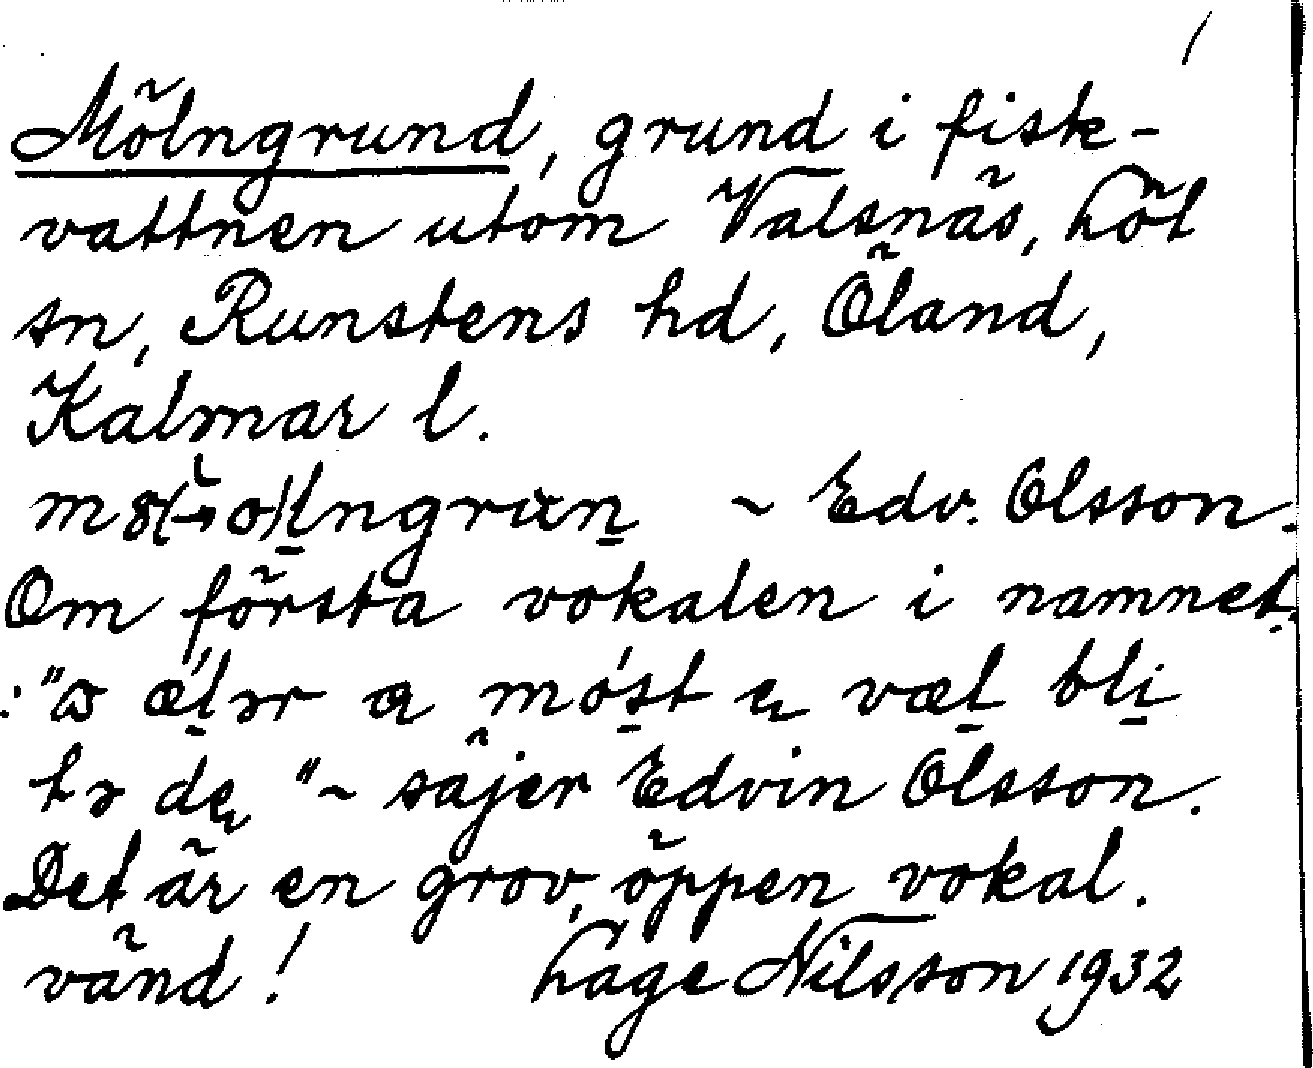 Mölngrund, grund i fisk-
vattnen utom Valsnäs, Löt
sn, Runstens hd, Öland,
Kalmar l.
~ Edv. Olsson.
Om första vokalen i namnet
: "ɷ æl̠ər a móst a væl̠ bli̠
tə de" ~ säjer Edvin Olsson.
Det är en grov, öppen vokal.
vänd! Lage Nilsson 1932